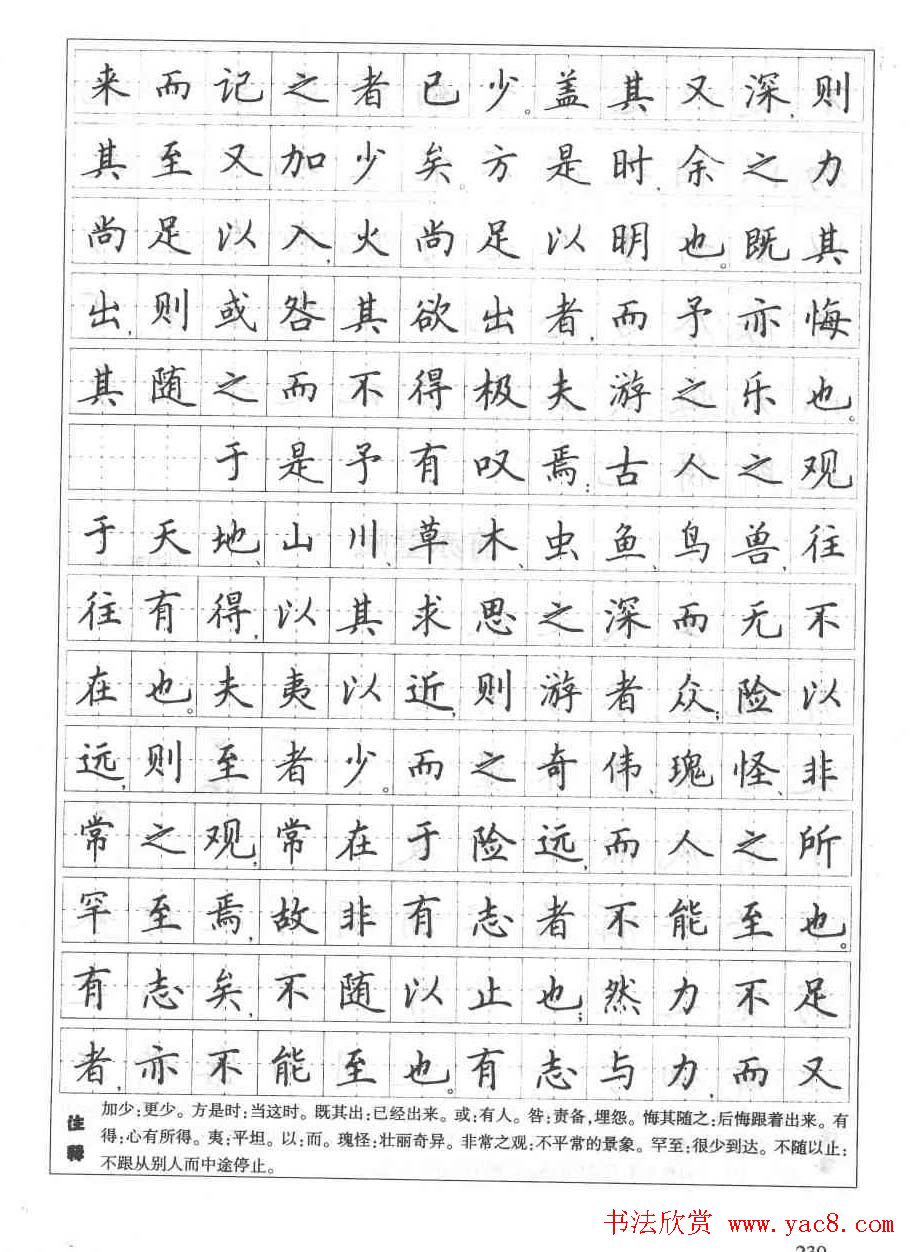 来而记之者已少。盖其又深,则
其至又加少矣。方是时,余之力
尚足以入,火尚足以明也。既其
出,则或咎其欲出者,而予亦悔
其随之而不得极夫游之乐也。
于是予有叹焉:古人之观
于天地、山川、草木、虫鱼、鸟兽,往
往有得,以其求思之深而无不
在也。夫夷以近,则游者众;险以
远,则至者少。而之奇伟、瑰怪、非
常之观,常在于险远,而人之所
罕至焉,故非有志者不能至也。
有志矣,不随以止也;然力不足
者,亦不能至也。有志与力,而又
注释
加少:更少。方是时:当这时。既其出:已经出来。或:有人。咎:责备,埋怨。悔其随之:后悔跟着出来。有
得:心有所得。夷:平坦。以:而。瑰怪:壮丽奇异。非常之观:不平常的景象。罕至:很少到达。不随以止:
不跟从别人而中途停止。
书法欣赏 www.yac8.com